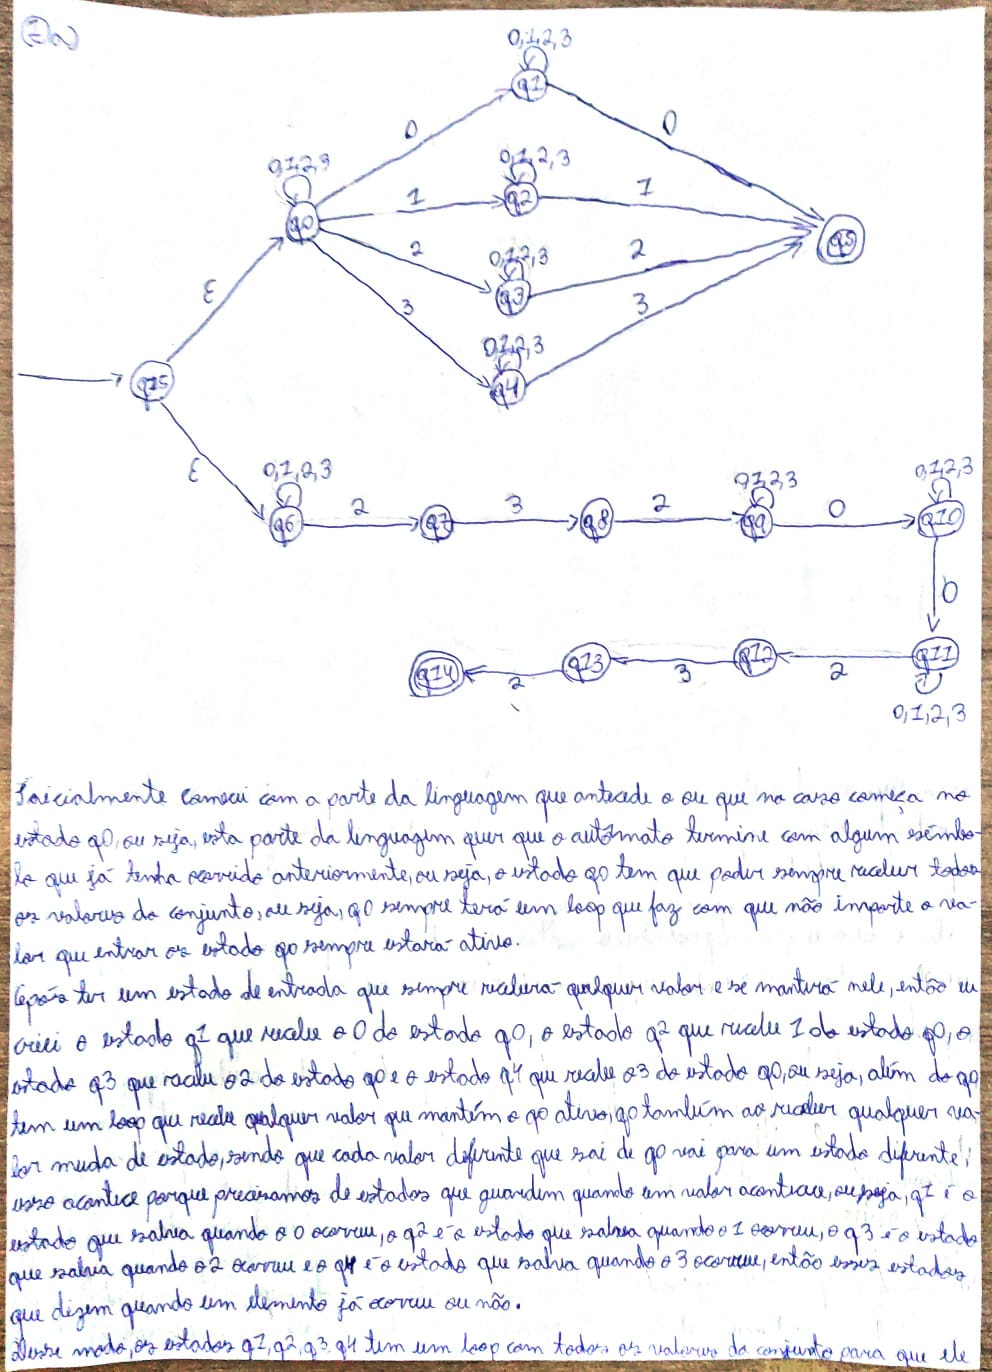 0,1,2,3
q1
0
0
0,1,2,3
0,1,2,3
q0
1
q2
1
q5
2
0,1,2,3
q3
2
3
0,1,2,3
q4
3
ε
q15
ε
0,1,2,3
q6
2
q7
3
q8
2
0,1,2,3
q9
0
0,1,2,3
q10
0
q14
2
q13
3
q12
2
q11
0,1,2,3
Inicialmente comecei com a parte da linguagem que antecede o ou que no caso começa no
estado q0, ou seja, esta parte da linguagem quer que o autômato termine com algum símbo-
lo que já tenha ocorrido anteriormente, ou seja, o estado q0 tem que poder sempre receber todos
os valores do conjunto, ou seja, q0 sempre terá um loop que faz com que não importe o va-
lor que entrar os estado q0 sempre estará ativo.
Após ter um estado de entrada que sempre receberá qualquer valor e se manterá nele, então eu
criei o estado q1 que recebe o 0 do estado q0, o estado q2 que recebe 1 do estado q0, o
estado q3 que recebe o 2 do estado q0 e o estado q4 que recebe o 3 do estado q0, ou seja, além do q0
tem um loop que recebe qualquer valor que mantém o q0 ativo, q0 também ao receber qualquer va-
lor muda de estado, sendo que cada valor diferente que sai de q0 vai para um estado diferente,
isso acontece porque precisamos de estados que guardem quando um valor acontece, ou seja, q1 é o
estado que saberá quando o 0 ocorreu, o q2 é o estado que saberá quando o 1 ocorreu, o q3 é o estado
que saberá quando o 2 ocorreu e o q4 é o estado que saberá quando o 3 ocorreu, então esses estados
que dizem quando um elemento já ocorreu ou não.
Desse modo, os estados q1, q2, q3 q4 tem um loop com todos os valores do conjunto para que ele